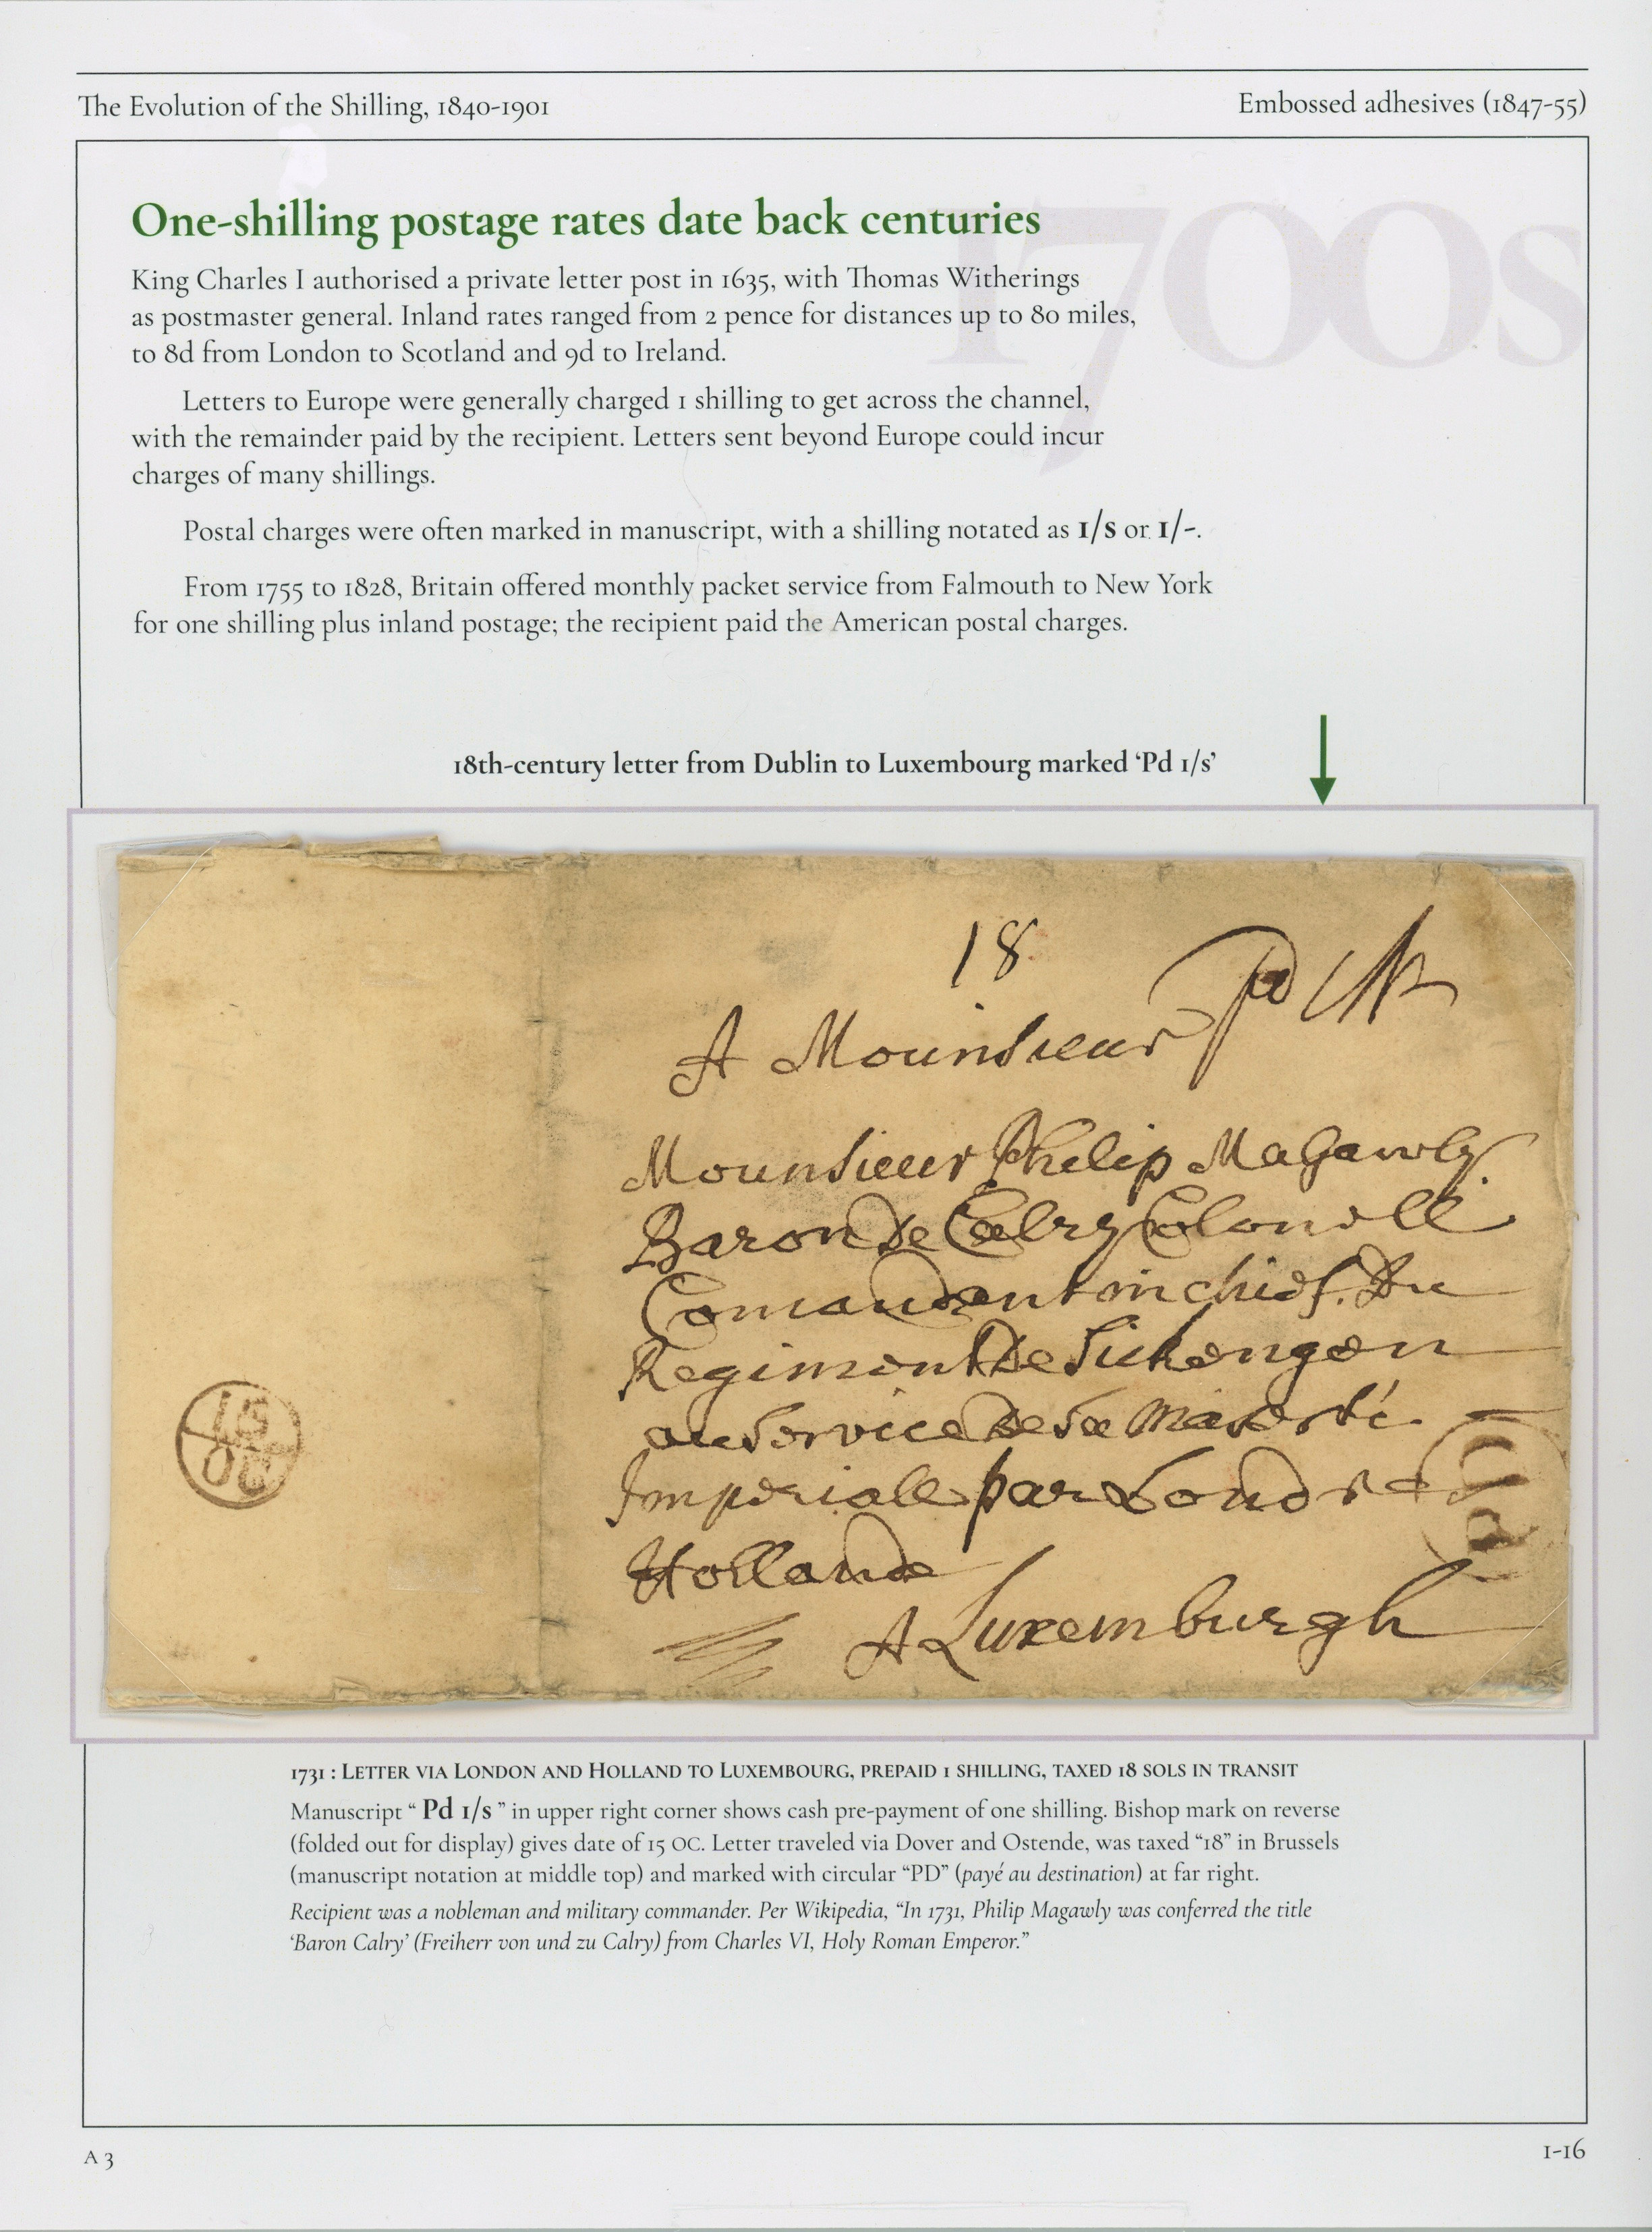 The Evolution of the Shilling, 1840-1901
Embossed adhesives (1847-55)
1700s
One-shilling postage rates date back centuries
King Charles I authorised a private letter post in 1635, with Thomas Witherings
as postmaster general. Inland rates ranged from 2 pence for distances up to 80 miles,
to 8d from London to Scotland and 9d to Ireland.
Letters to Europe were generally charged 1 shilling to get across the channel,
with the remainder paid by the recipient. Letters sent beyond Europe could incur
charges of many shillings.
Postal charges were often marked in manuscript, with a shilling notated as 1/s or 1/-.
From 1755 to 1828, Britain offered monthly packet service from Falmouth to New York
for one shilling plus inland postage; the recipient paid the American postal charges.
18th-century letter from Dublin to Luxembourg marked ‘Pd 1/s’
18
Pd 1/s
A Mounsieur
Mounsieur Philip MaGawly
Baron de Calry Colonell
Comandant in chief. Du
Regiment de Sickengen
au Service de Sa Majesté
Imperiall par Londre
Hollande
A Luxemburgh
15
OC
PD
1731 : LETTER VIA LONDON AND HOLLAND TO LUXEMBOURG, PREPAID 1 SHILLING, TAXED 18 SOLS IN TRANSIT
Manuscript “ Pd 1/s ” in upper right corner shows cash pre-payment of one shilling. Bishop mark on reverse
(folded out for display) gives date of 15 OC. Letter traveled via Dover and Ostende, was taxed “18” in Brussels
(manuscript notation at middle top) and marked with circular “PD” (payé au destination) at far right.
Recipient was a nobleman and military commander. Per Wikipedia, “In 1731, Philip Magawly was conferred the title
‘Baron Calry’ (Freiherr von und zu Calry) from Charles VI, Holy Roman Emperor.”
A 3
1-16